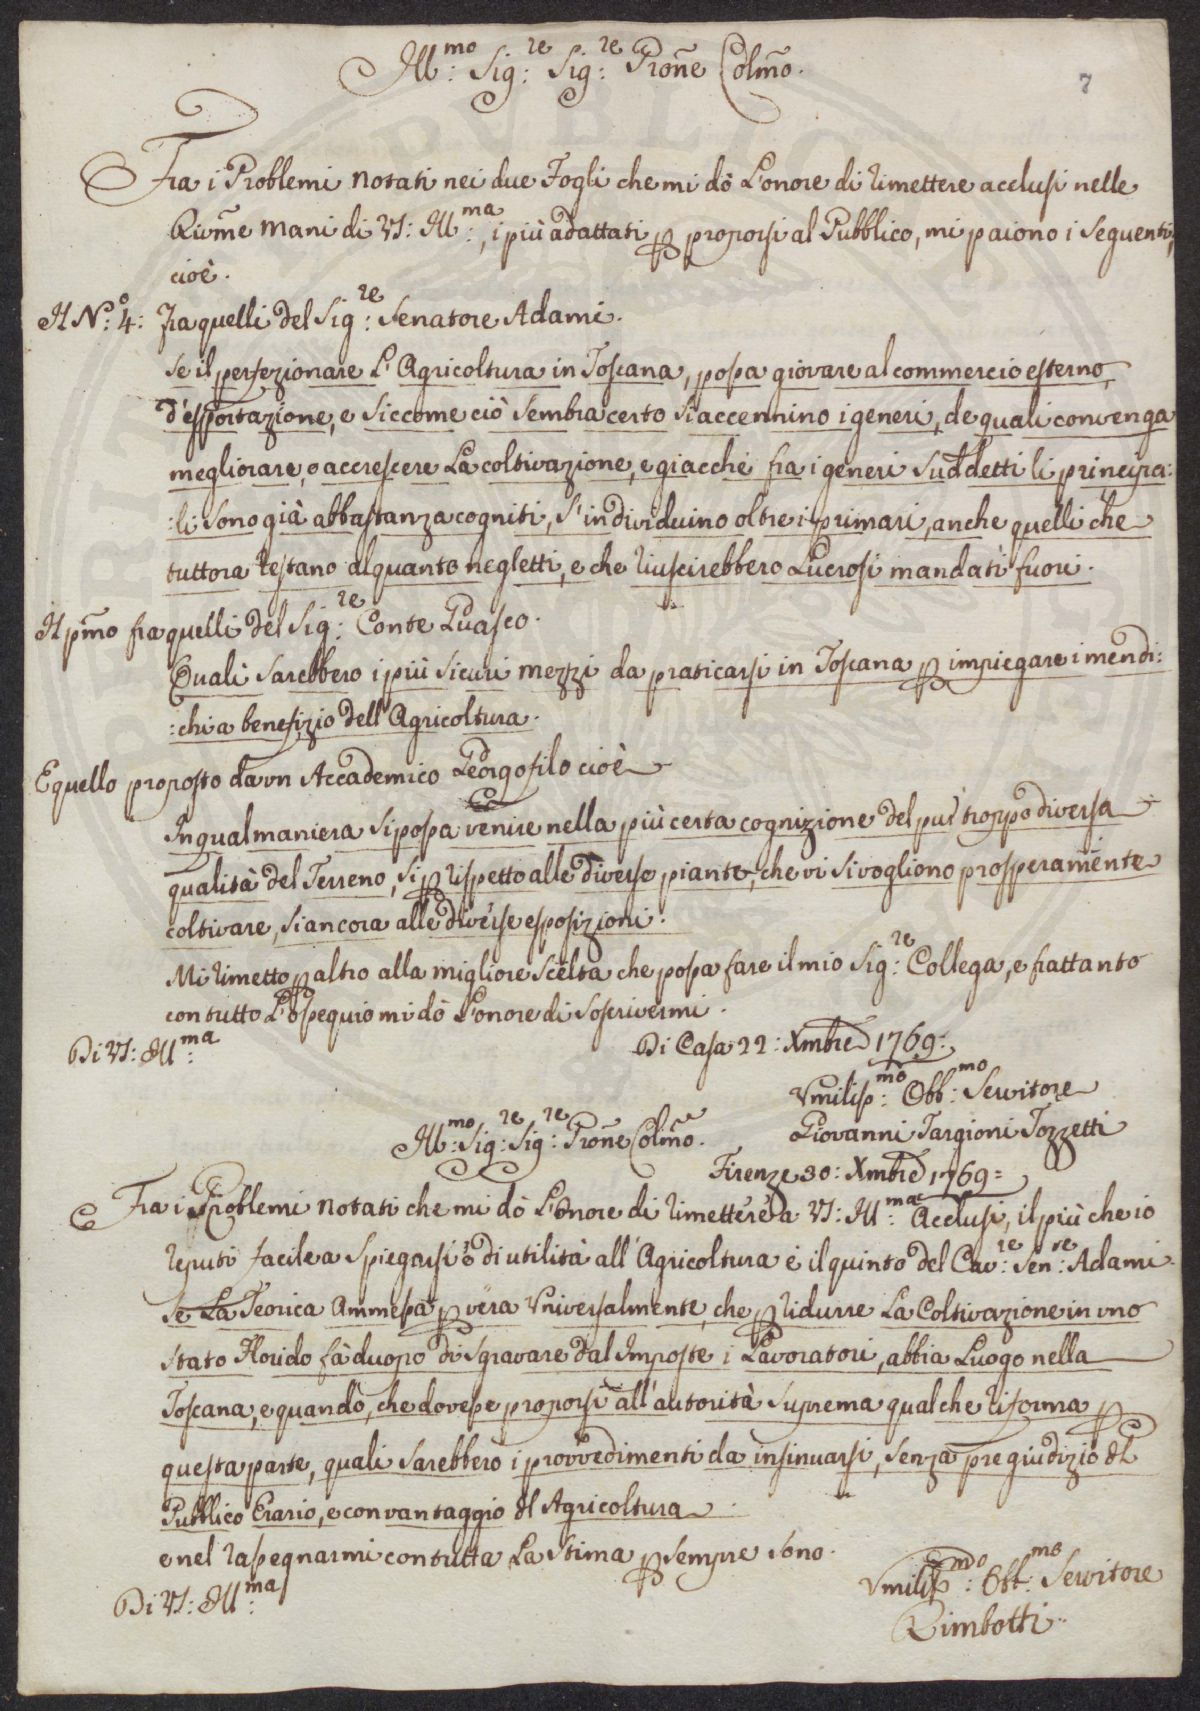 Ill:mo Sig:re Sig:re Prõne Colmõ.
7
Fra i Problemi notati nei due Fogli che mi dò L'onore di rimettere acclusi nelle
Rivm̃e mani di VS: Ill:ma, i più adattati p proporsi al Pubblico, mi paiono i seguenti,
cioè.
Il N.º 4: fra quelli del Sig:re Senatore Adami.
Se il perfezionare L'Agricoltura in Toscana, possa giovare al commercio esterno
d'esportazione, e siccome ciò sembra certo si accennino i generi, de quali convenga
megliorare, o accrescere La coltivazione, e giacchè fra i generi suddetti li principa:
:li sono già abbastanza cogniti, s'individuino oltre i primari, anche quelli che
tuttora restano alquanto negletti, e che riuscirebbero Lucrosi mandati fuori.
Il pm̃o fra quelli del Sig:re Conte Guasco.
Quali sarebbero i più sicuri mezzi da praticarsi in Toscana p impiegare i mendi:
:chi a benefizio dell'Agricoltura.
E quello proposto da un Accademico Georgofilo cioè
In qual maniera si possa venire nella più certa cognizione del pur troppo diversa
qualità del Terreno, sì p rispetto alle diverse piante, che vi si vogliono prosperamente
coltivare, si ancora alle diverse esposizioni.
Mi rimetto p altro alla migliore scelta che possa fare il mio Sig:re Collega, e frattanto
con tutto L'ossequio mi dò L'onore di soscrivermi.
Di VS: Ill:ma
Di Casa 22: Xmbre 1769:
Vmiliss:mo Obb:mo Servitore
Giovanni Targioni Tozzetti
Ill:mo Sig:re Sig:re Prõne Colmõ.
Firenze 30: Xmbre 1769=
Fra i Problemi notati che mi dò L'Onore di rimettere a VS: Ill:ma Acclusi, il più che io
reputi facile a spiegarsi e di utilità all'Agricoltura è il quinto del Cav:re Sen:re Adami.
Se La Teorica Ammessa p vera Vniversalmente, che p ridurre La Coltivazione in vno
stato Florido fà duopo di sgravare dal Imposte i Lavoratori, abbia Luogo nella
Toscana, e quando, che dovesse proporsi all'autorità suprema qualche riforma p
questa parte, quali sarebbero i provvedimenti da insinuarsi, senza pregiudizio dl
Pubblico Erario, e con vantaggio dl Agricoltura
e nel rassegnarmi con tutta La stima p sempre sono.
Di VS: Ill:ma
Vmiliss:mo Obb:mo Servitore
Rimbotti.